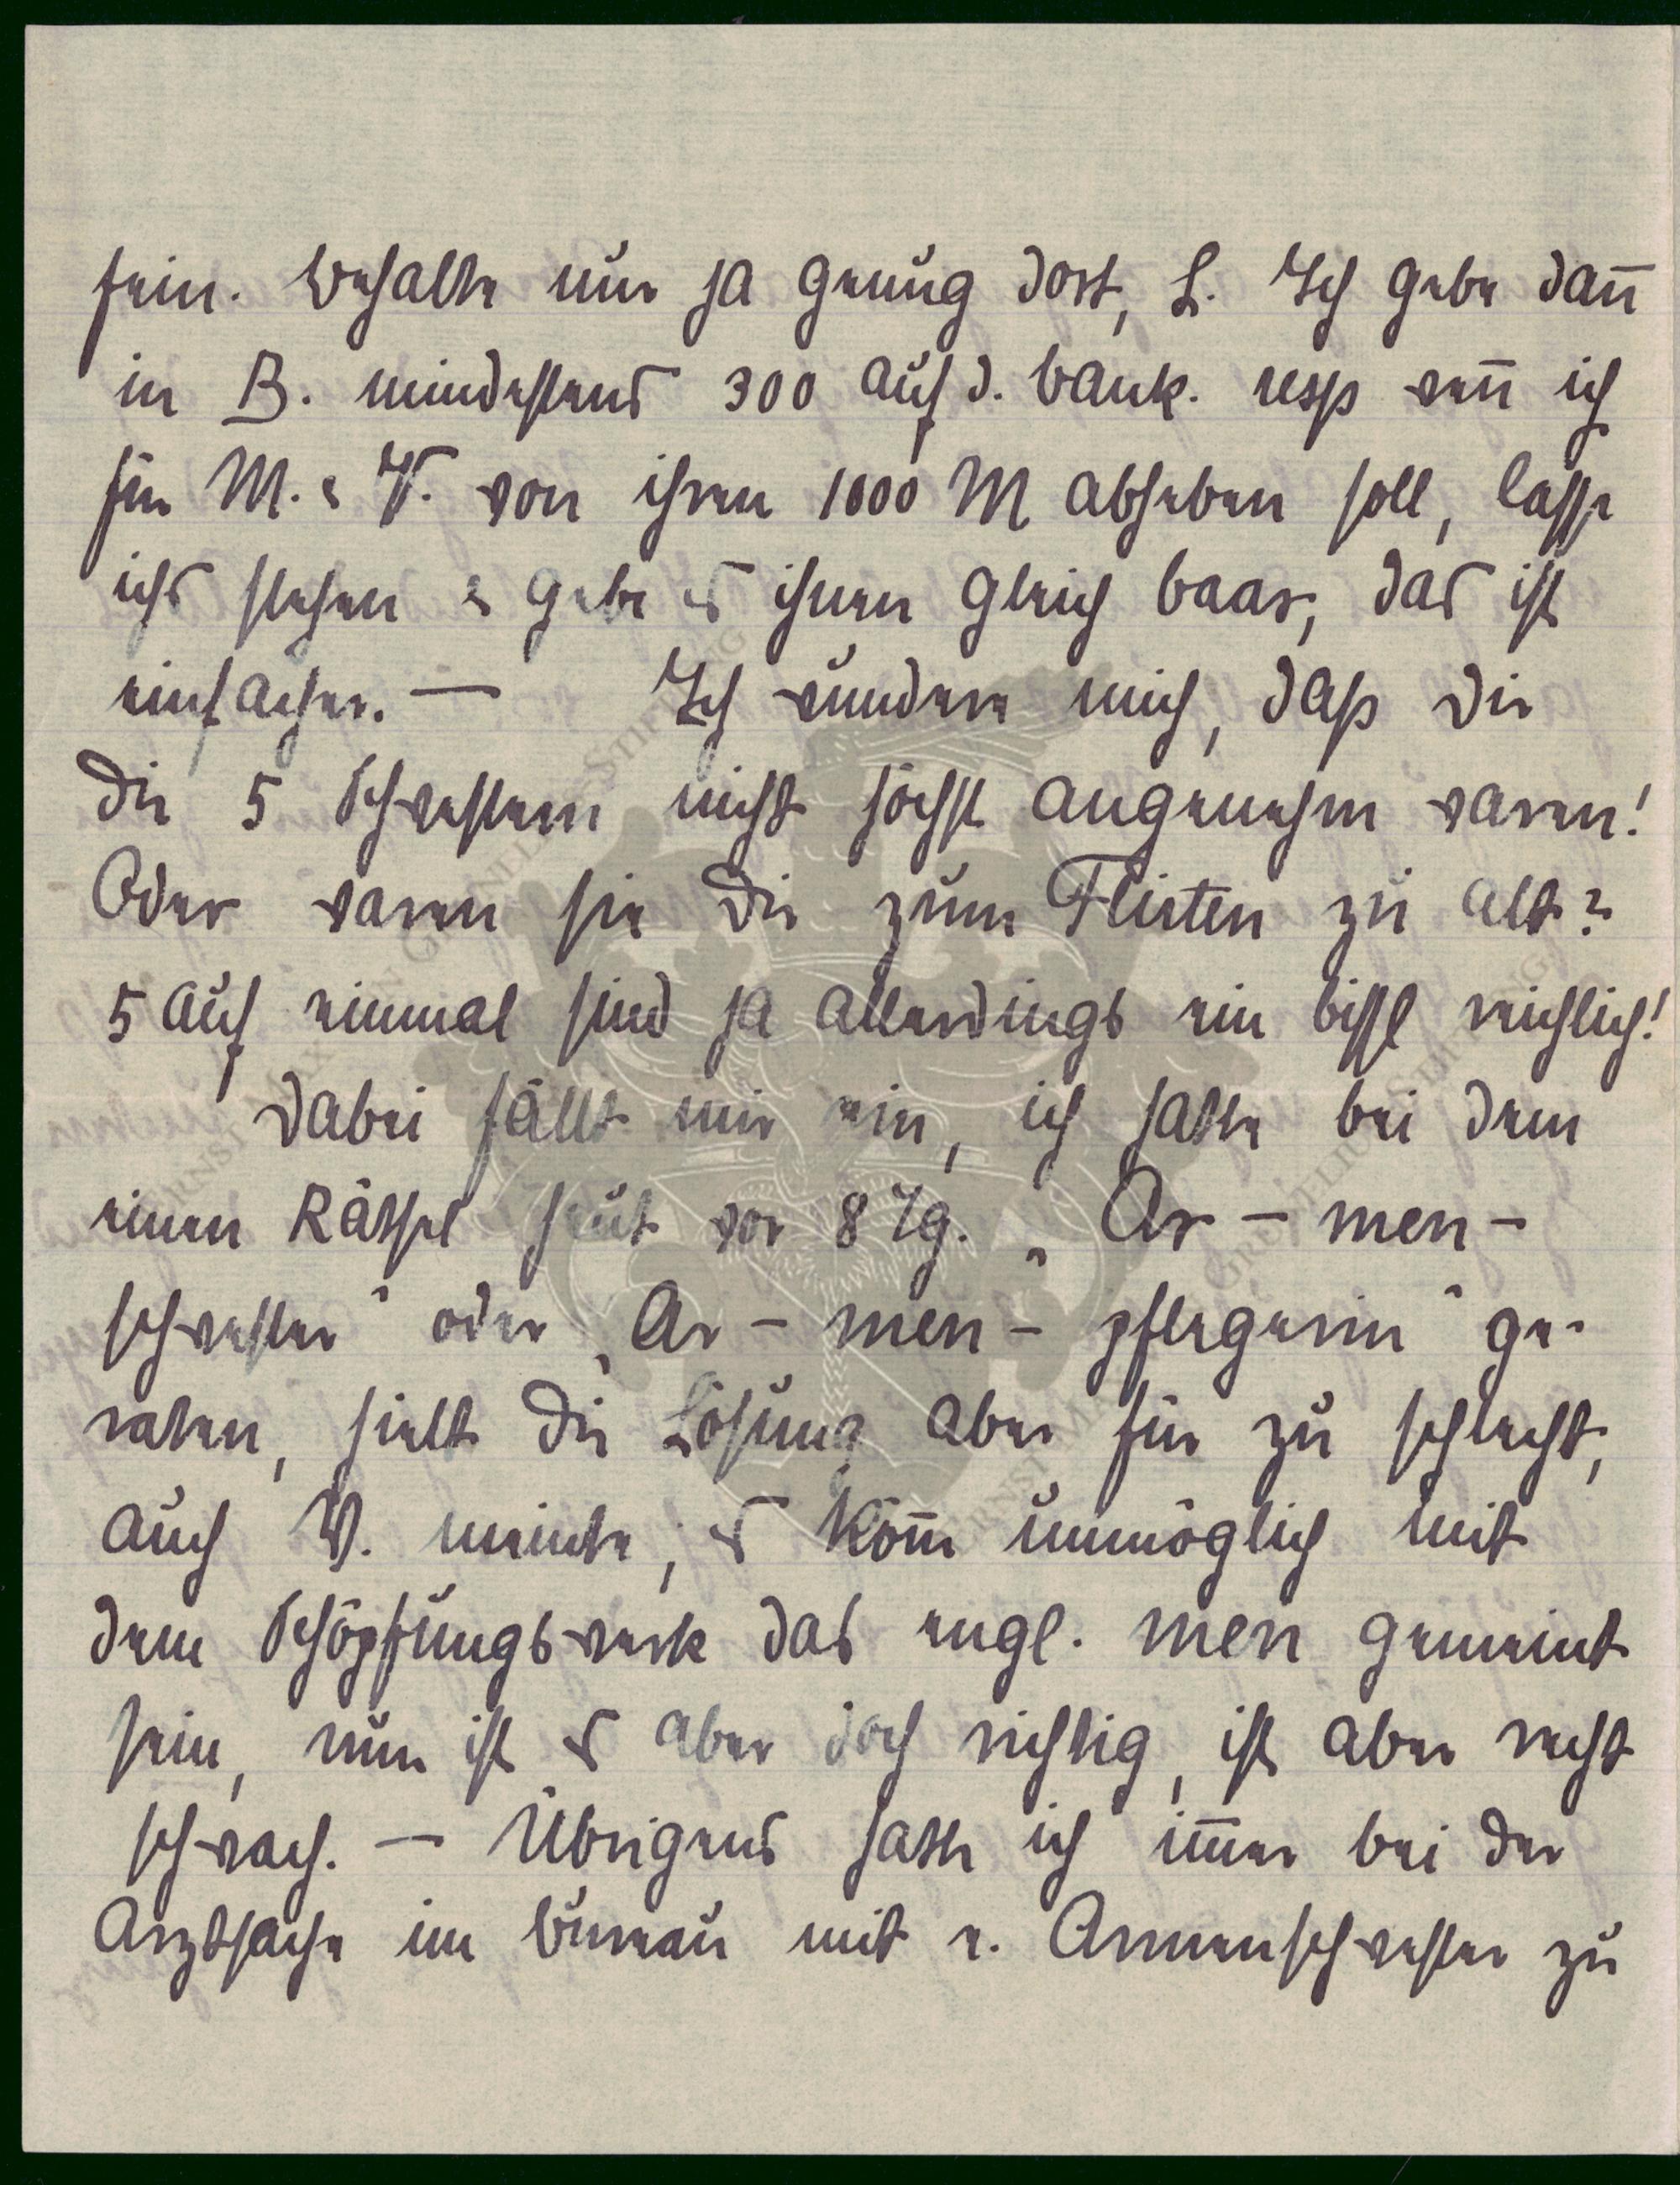 sein. Behalte nur ja genug dort, L. Ich gebe dan̄
in B. mindestens 300 auf d. Bank. resp wen̄ ich
für M. & V. von ihren 1000 M abheben soll, lasse
ichs stehen & gebe es ihnen gleich baar, das ist
einfacher. — Ich wundere mich, daß Dir
die 5 Schwestern nicht höchst angenehm waren!
Oder waren sie Dir zum Flirten zu alt?
5 auf einmal sind ja allerdings ein bissl reichlich!
Dabei fällt mir ein, ich hatte bei dem
einen Räthsel heut vor 8 Tg. „Ar - men -
schwester" oder „Ar - men - pflegerin" ge-
raten, hielt die Lösung aber für zu schlecht,
auch V. meinte, es kön̄e unmöglich mit
dem Schöpfungswerk das engl. men gemeint
sein, nun ist es aber doch richtig, ist aber recht
schwach. — Übrigens hatte ich im̄er bei der
Arztsache im Bureau mit e. Armenschwester zu